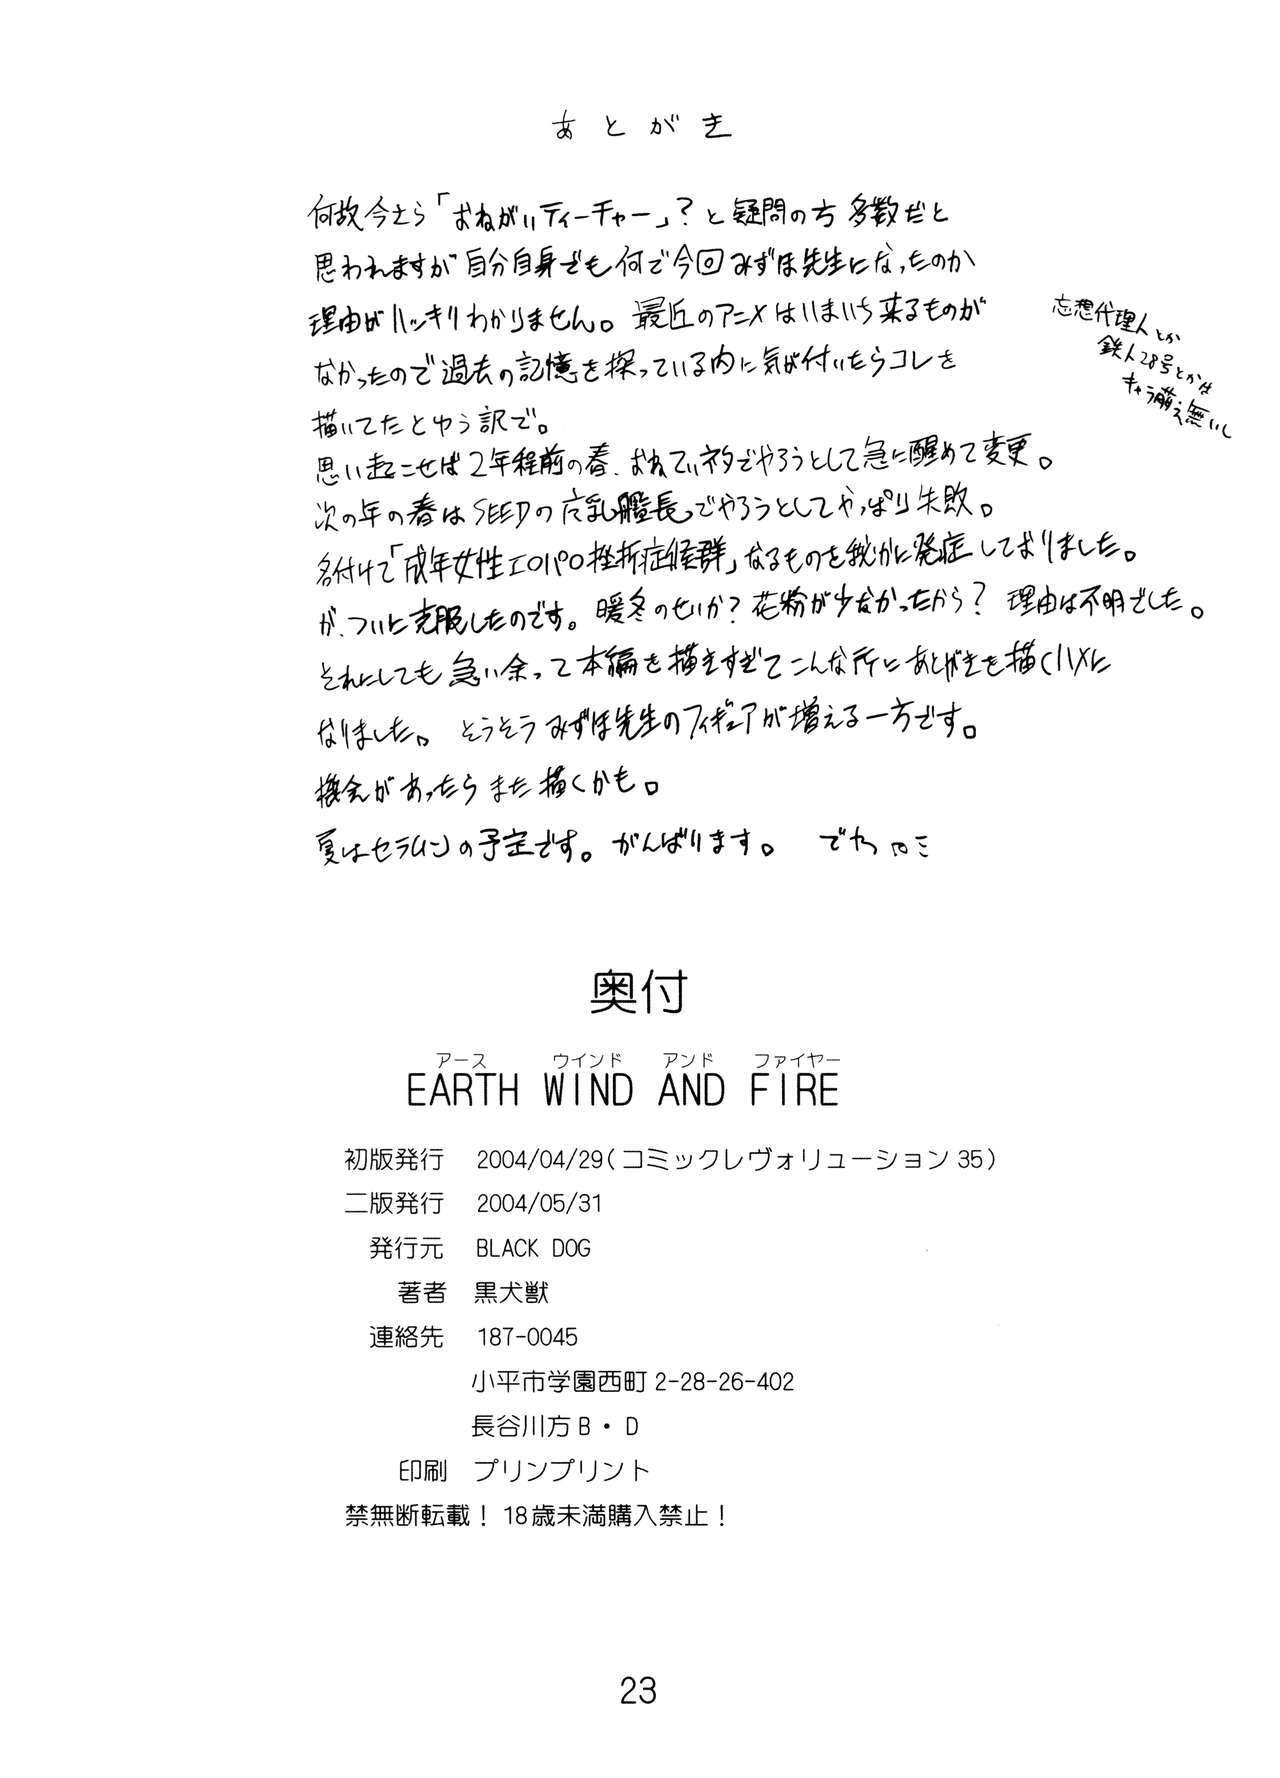 あとがき
何故今さら「おねがいティーチャー」？と疑問の方多数だと
思われますが自分自身でも何で今回みずほ先生になったのか
理由がハッキリわかりません。最近のアニメはいまいち来るものが
なかったので過去の記憶を探っている内に気が付いたらコレを
描いてたとゆう訳で。
妄想代理人とか
鉄人28号とかは
キャラ萌え無いし
思い起こせば2年程前の春、おねてぃネタでやろうとして急に醒めて変更。
次の年の春はSEEDの乳艦長でやろうとしてやっぱり失敗。
名付けて「成年女性エロパロ挫折症候群」なるものを密かに発症しておりました。
が、ついに克服したのです。暖冬のせいか？花粉が少なかったから？理由は不明でした。
それにしても急い余って本編を描きすぎてこんな所にあとがきを描くハメに
なりました。そうそうみずほ先生のフィギュアが増える一方です。
機会があったらまた描くかも。
夏はセラムンの予定です。がんばります。 でわ
奥付
アース ウインド アンド ファイヤー
EARTH WIND AND FIRE
初版発行 2004/04/29(コミックレヴォリューション35)
二版発行 2004/05/31
発行元 BLACK DOG
著者 黒犬獣
連絡先 187-0045
小平市学園西町2-28-26-402
長谷川方B・D
印刷 プリンプリント
禁無断転載！18歳未満購入禁止！
23